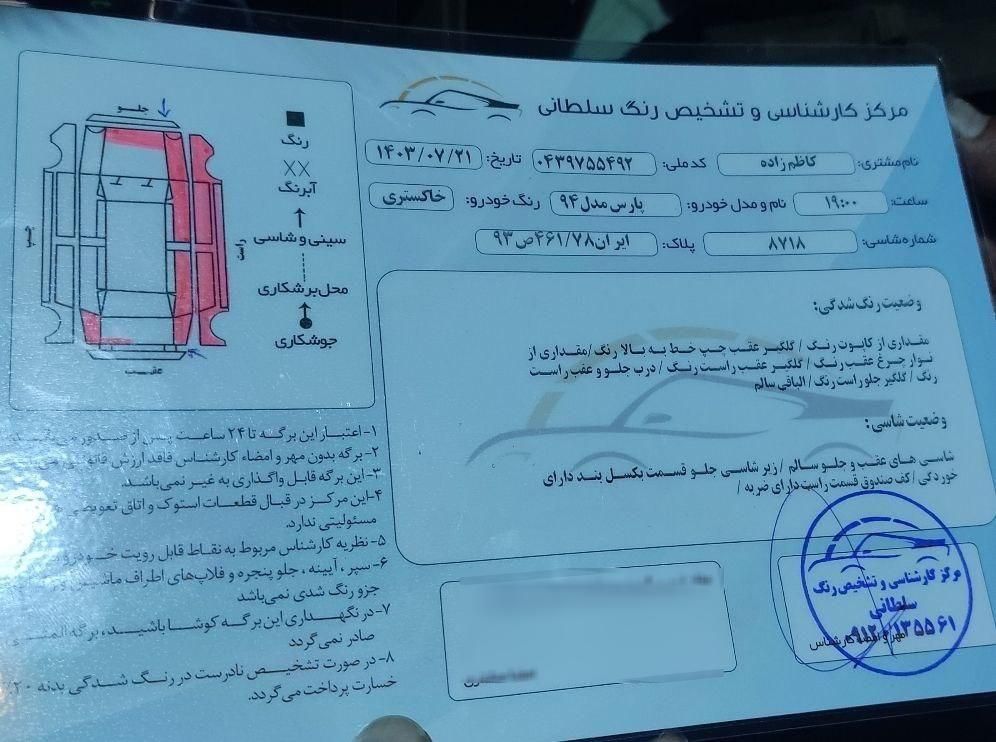 مرکز کارشناسی و تشخیص رنگ سلطانی
نام مشتری: کاظم زاده کد ملی: ۰۴۳۹۷۵۵۴۹۲ تاریخ: ۱۴۰۳/۰۷/۲۱
ساعت: ۱۹:۰۰ نام و مدل خودرو: پارس مدل ۹۴ رنگ خودرو: خاکستری
شماره شاسی: ۸۷۱۸ پلاک: ایران ۷۸/۴۶۱ص۹۳
جلو
چپ
راست
عقب
رنگ
XX
آبرنگ
سینی و شاسی
محل برشکاری
جوشکاری
وضعیت رنگ شدگی:
مقداری از کاپوت رنگ / گلگیر عقب چپ خط به بالا رنگ/مقداری از
نوار چرغ عقب رنگ / گلگیر عقب راست رنگ / درب جلو و عقب راست
رنگ / گلگیر جلو راست رنگ / الباقی سالم
وضعیت شاسی:
شاسی های عقب و جلو سالم / زیر شاسی جلو قسمت بکسل بند دارای
خوردگی / کف صندوق قسمت راست دارای ضربه /
۱- اعتبار این برگه تا ۲۴ ساعت پس از صدور می
۲- برگه بدون مهر و امضاء کارشناس فاقد ارزش قانونی می
۳- این برگه قابل واگذاری به غیر نمی‌باشد.
۴- این مرکز در قبال قطعات استوک و اتاق تعویضی
مسئولیتی ندارد.
۵- نظریه کارشناس مربوط به نقاط قابل رویت خودرو
۶- سپر ، آیینه ، جلو پنجره و فلاپ‌های اطراف ماشین
جزو رنگ شدی نمی‌باشد
۷- در نگهداری این برگه کوشا باشید، برگه المثنی
صادر نمی‌گردد
۸- در صورت تشخیص نادرست در رنگ شدگی بدنه ۲۰
خسارت پرداخت می‌گردد.
مرکز کارشناسی و تشخیص رنگ
سلطانی
مهر و امضاء کارشناس